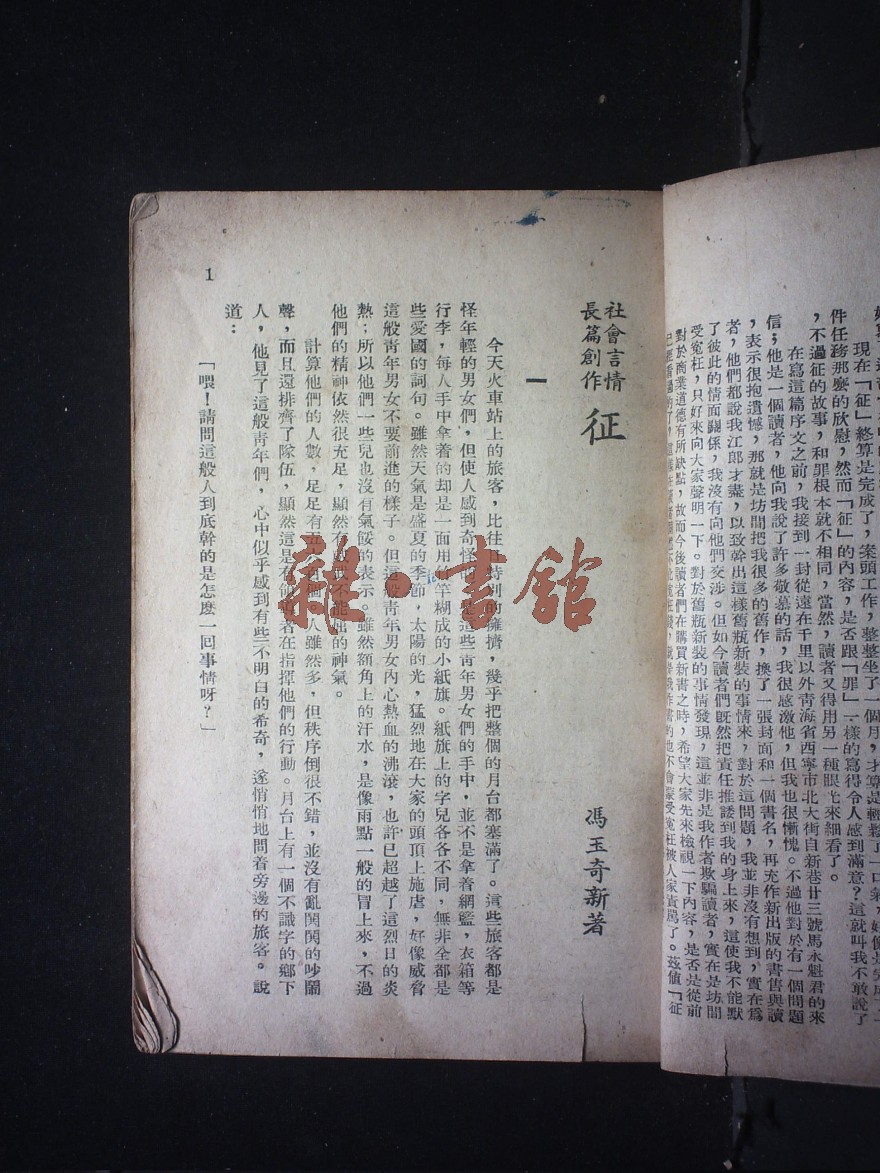 現在「征」終算是完成了，案頭工作，整整坐了一個月，才算是輕鬆了一口氣，
件任務那麼的欣慰，然而「征」的內容，是否跟「罪」一樣的寫得令人感到滿意？這就叫我不敢說了
，不過征的故事，和罪根本就不相同，當然，讀者又得用另一種眼光來細看了。
在寫這篇序文之前，我接到一封從遠在千里以外靑海省西寧市北大街自新巷廿三號馬永魁君的來
信；他是一個讀者，他向我說了許多敬慕的話，我很感激他，但我也很慚愧。不過他對於有一個問題
，表示很抱遺憾，那就是坊間把我很多的舊作，換了一張封面和一個書名，再充作新出版的書售與讀
者，他們都說我江郎才盡，以致幹出這樣舊瓶新裝的事情來，對於這問題，我並非沒有想到，實在爲
了彼此的情面關係，我沒有向他們交涉。但如今讀者們既然把責任推諉到我的身上來，這使我不能默
受寃枉，只好來向大家聲明一下。對於舊瓶新裝的事情發現，這並非是我作者欺騙讀者，實在是坊間
對於商業道德有所缺點，故而今後讀者們在購買新書之時，希望大家先來檢視一下內容，是否是從前
已經看過的了，
的也不會蒙受寃枉被人家責罵了。茲値「征
社會言情
長篇創作
征
馮玉奇新著
一
今天火車站上的旅客，比往日特別的擁擠，幾乎把整個的月台都塞滿了。這些旅客都是
怪年輕的男女們，但使人感到奇怪的，是這些靑年男女們的手中，並不是拿着網籃，衣箱等
行李，每人手中拿着的却是一面用竹竿糊成的小紙旗。紙旗上的字兒各各不同，無非全都是
些愛國的詞句。雖然天氣是盛夏的季節，太陽的光，猛烈地在大家的頭頂上施虐，好像威脅
這般靑年男女不要前進的樣子。但這般靑年男女內心熱血的沸滾，也許已超越了這烈日的炎
熱；所以他們一些兒也沒有氣餒的表示。雖然額角上的汗水，是像雨點一般的冒上來，不過
他們的精神依然很充足，顯然有 不能屈的神氣。
計算他們的人數，足足有 個 人雖然多，但秩序倒很不錯，並沒有亂鬨鬨的吵鬧
聲，而且還排齊了隊伍，顯然這是有領 者在指揮他們的行動。月台上有一個不識字的鄉下
人，他見了這般靑年們，心中似乎感到有些不明白的希奇，遂悄悄地問着旁邊的旅客。說
道：
「喂！請問這般人到底幹的是怎麽一回事情呀？」
1
雜·書館